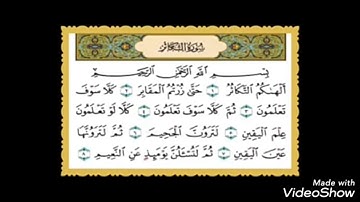 سورة التكاثر
بسم الله الرحمن الرحيم
ألهاكم التكاثر ١ حتى زرتم المقابر ٢ كلا سوف
تعلمون ٣ ثم كلا سوف تعلمون ٤ كلا لو تعلمون
علم اليقين ٥ لترون الجحيم ٦ ثم لترونها
عين اليقين ٧ ثم لتسئلن يومئذ عن النعيم ٨
Made with
VideoShow